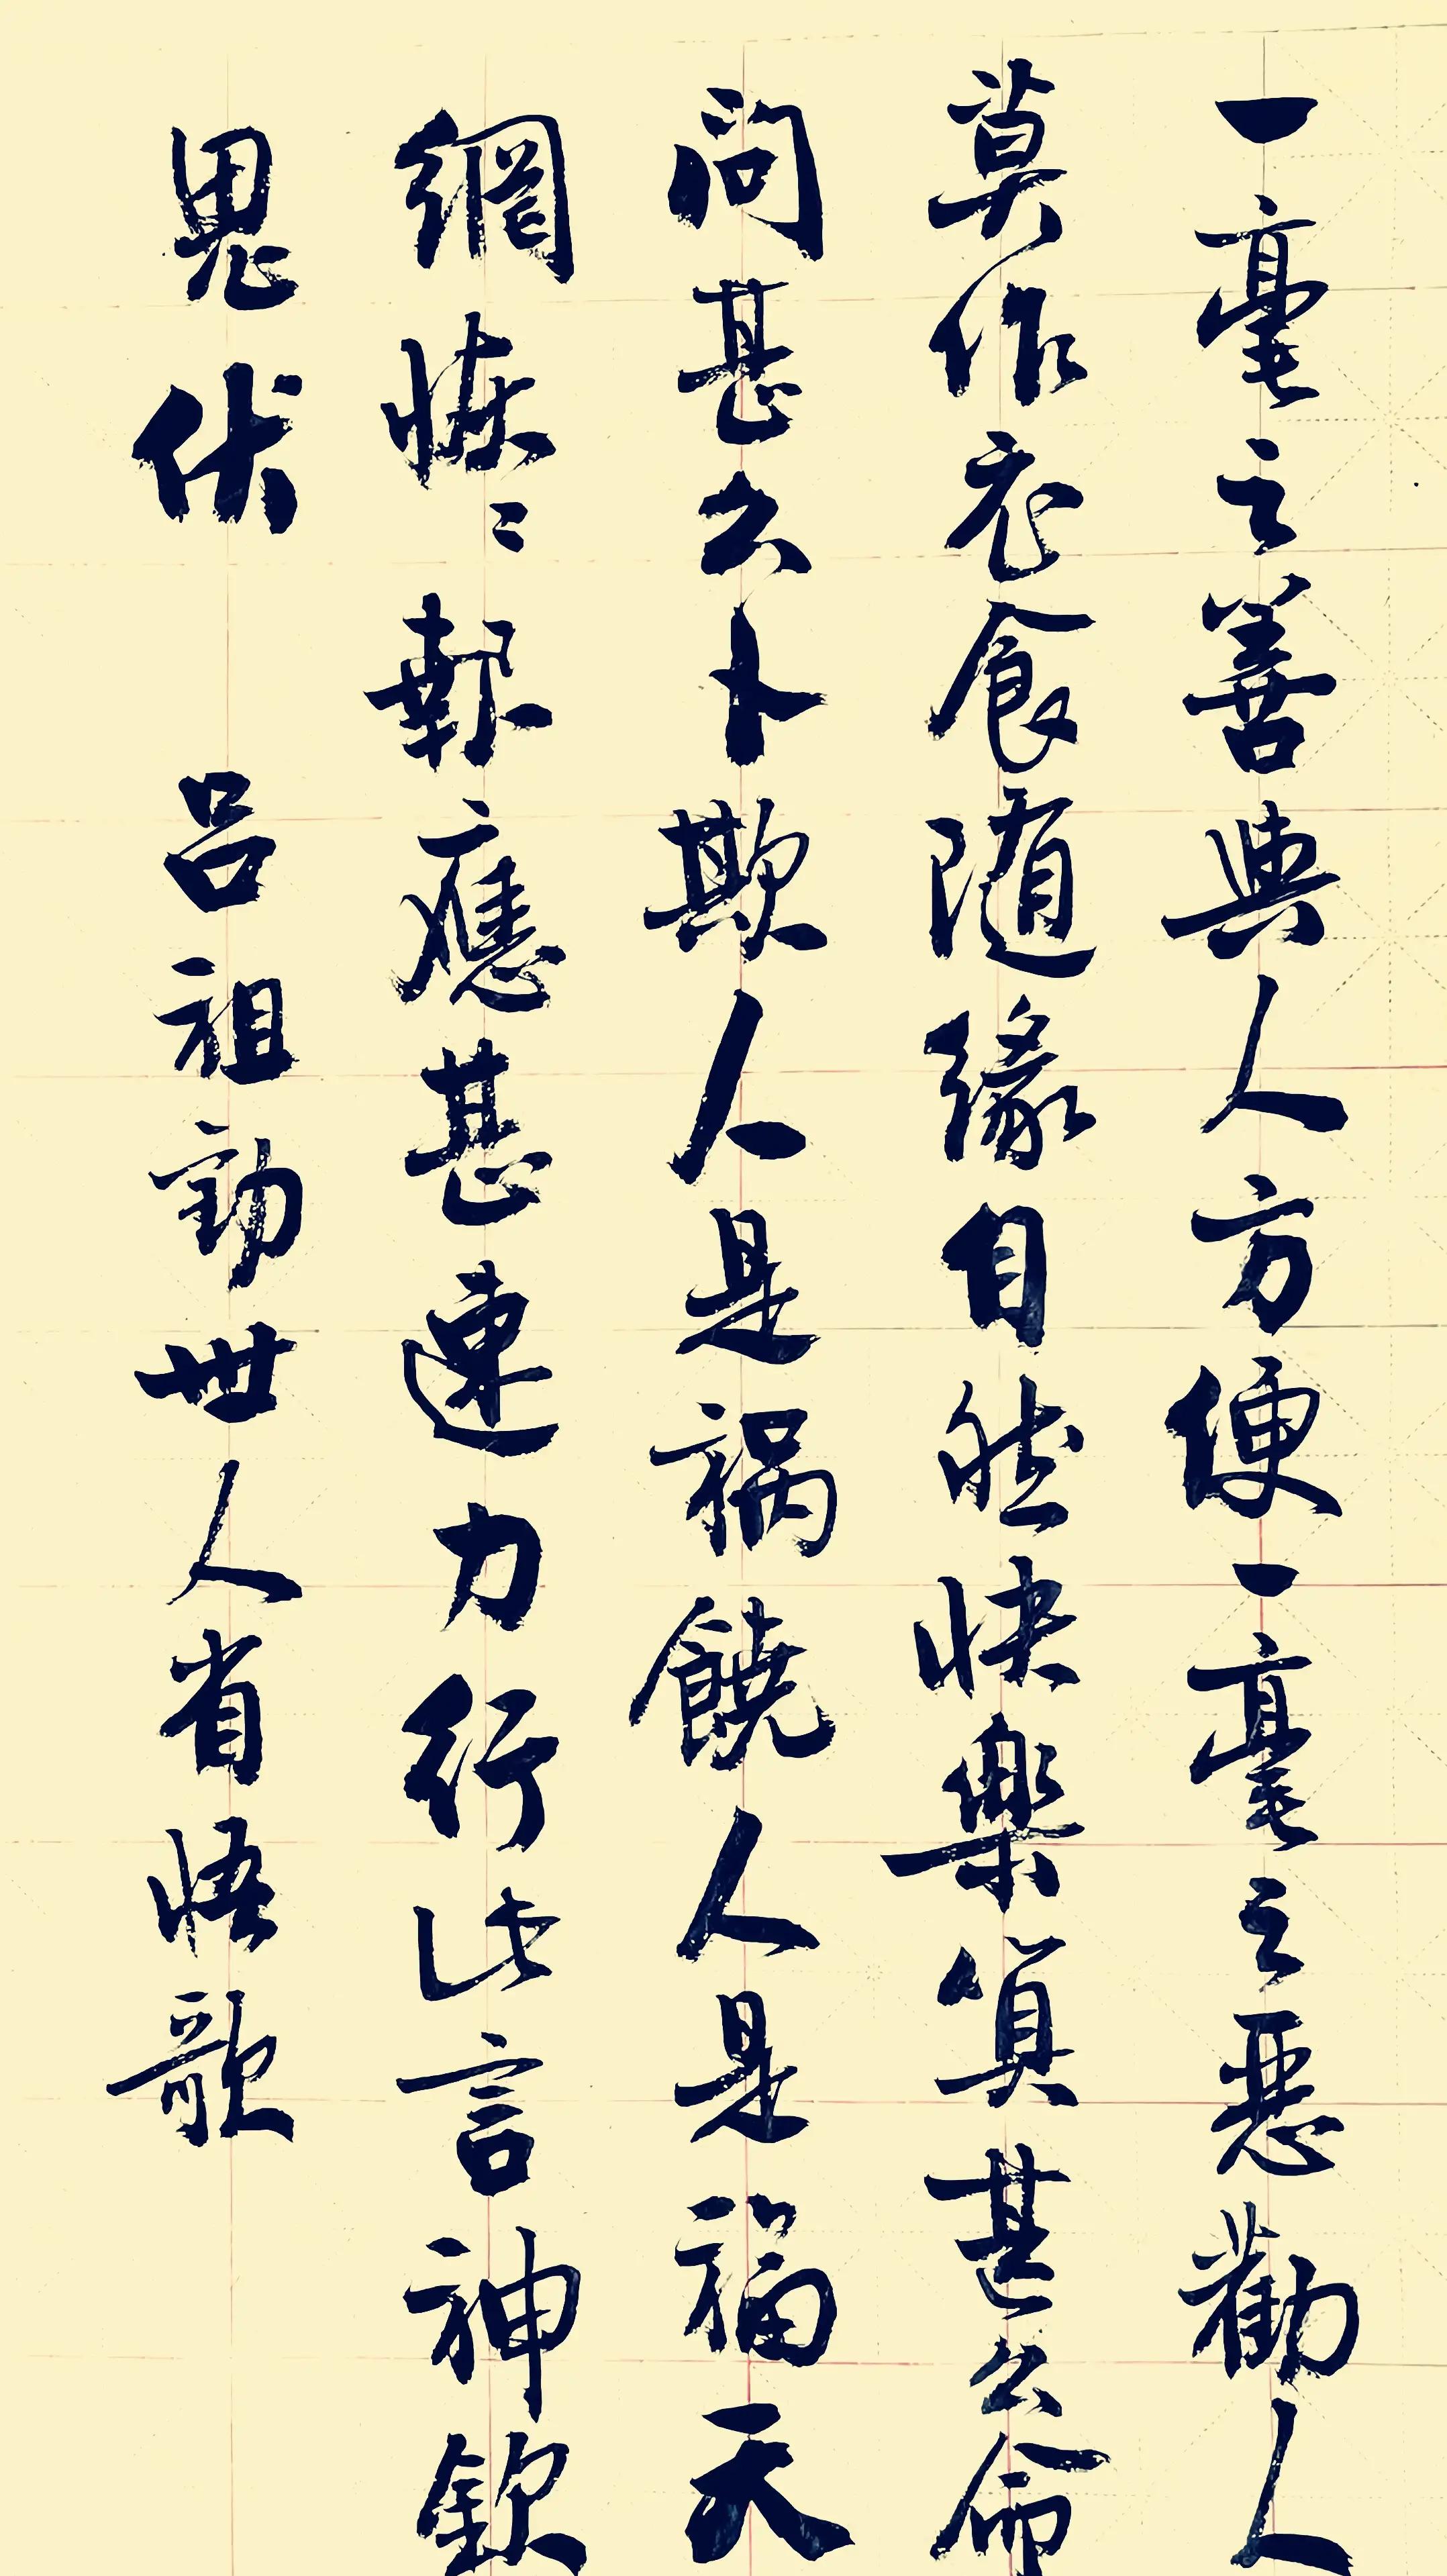 一毫之善與人方便一毫之惡勸人
莫作衣食随緣自然快樂算甚么命
问甚么卜欺人是祸饒人是福天
網恢恢報應甚速力行此言神欽
鬼伏
吕祖勸世人省悟歌